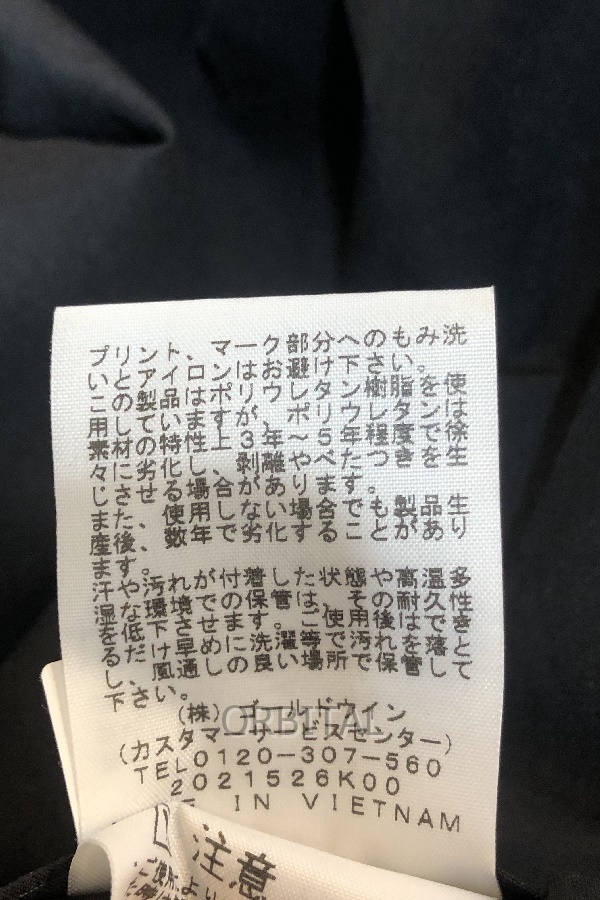 プリント、マーク部分へのもみ洗
いとアイロンはお避け下さい。
この製品はポリウレタン樹脂を使
用していますが、ポリウレタンは
素材の特性上、3年〜5年程度で徐
々に劣化し、剥離やべたつきを生
じさせる場合があります。
また、使用しない場合でも製品生
産後、数年で劣化することがあり
ます。
汗や汚れが付着した状態や高温多
湿な環境での保管は、その耐久性
を低下させます。ご使用後はでき
るだけ早めに洗濯等で汚れを落と
し、風通しの良い場所で保管して
下さい。
(株)ゴールドウイン
ORBITAL
(カスタマーサービスセンター)
TEL0120-307-560
2021526K00
IN VIETNAM
注意